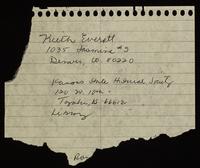 Keith Everett
1035 Jasmine #3
Denver, CO. 80220
Kansas State Historical Society
120 W. 10th
Topeka, KS 66612
Library